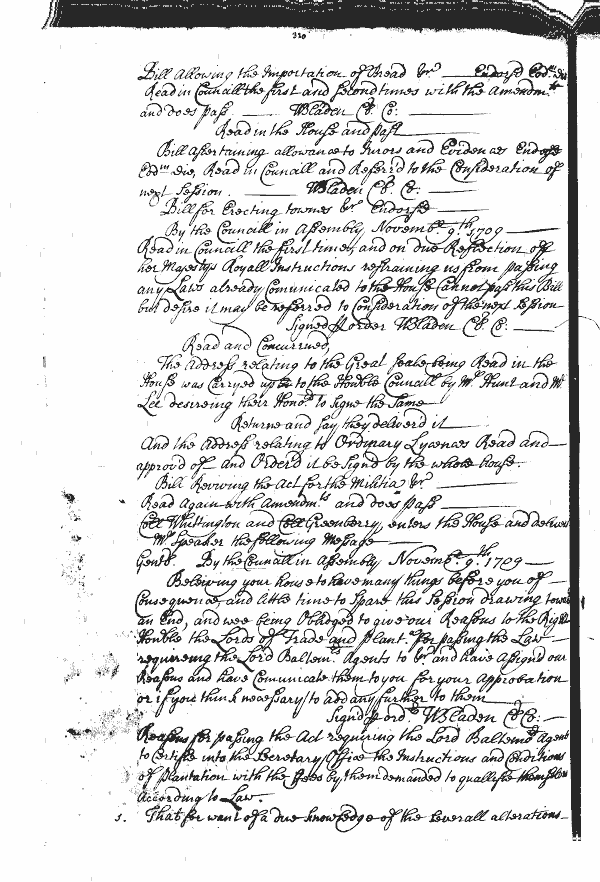 320
Bill Allowing the Importation of Bread &c.ª Endors'd Eod.m die
Read in Councill the first and Second times with the Amendm.ts
and does pass. WBladen Cl. Co:
Read in the House and past
Bill Assertaining allowance to Jurors and Evidences Endorst
Eod.m die, Read in Councill and Referr'd to the Consideration of
next Session. WBladen Cl. C:
Bill for Erecting townes &c.ª Endorst
By the Councill in Assembly Novemb.r 9.th 1709
Read in Councill the first time, and on due Reflection off
her Majestys Royall Instructions restraining us from passing
any Laws already Comunicated to the House Cannot pass this Bill
but desire it may be referred to Consideration of the next Session
Signed p order WBladen Cl. C.
Read and Concurrined,
The Address relating to the Great Seale being Read in the
House was Carryed up to the Honble Councill by M.r Hunt and M.r
Lee desireing their Hono.rs to Signe the Same
Returne and Say they deliver'd it
And the Address relating to Ordinary Lycences Read and
approv'd of and Order'd it be Signd by the whole house.
Bill Reviving the Act for the Militia &c.ª
Read Again with Amendm.ts and does pass
Coll Whittington and Coll Greenberry, enters the House and deliver
M.r Speaker the following Message
Gentl. By the Councill in Assembly Novemb.r 9.th 1709
Believing your house to have many things before you of
Consequence, and little time to Spare this Session drawing toward
an End, and wee being Obliged to give our Reasons to the Right
Honble the Lords of Trade and Plant.s for passing the Law
requireing the Lord Baltem.s Agents to &c.ª and have Assignd our
Reasons and have Comunicate them to you for your Approbation
or if you think necessary to add any further to them
Signd p ord.r WBladen Cl. C:
Reasons for passing the Act requiring the Lord Baltem.s Agent
to Certifie into the Secretary's Office the Instructions and Conditions
of plantation with the ffees by them demanded to quallifie themselves
According to Law.
1. That for want of a due knowledge of the Severall alterations